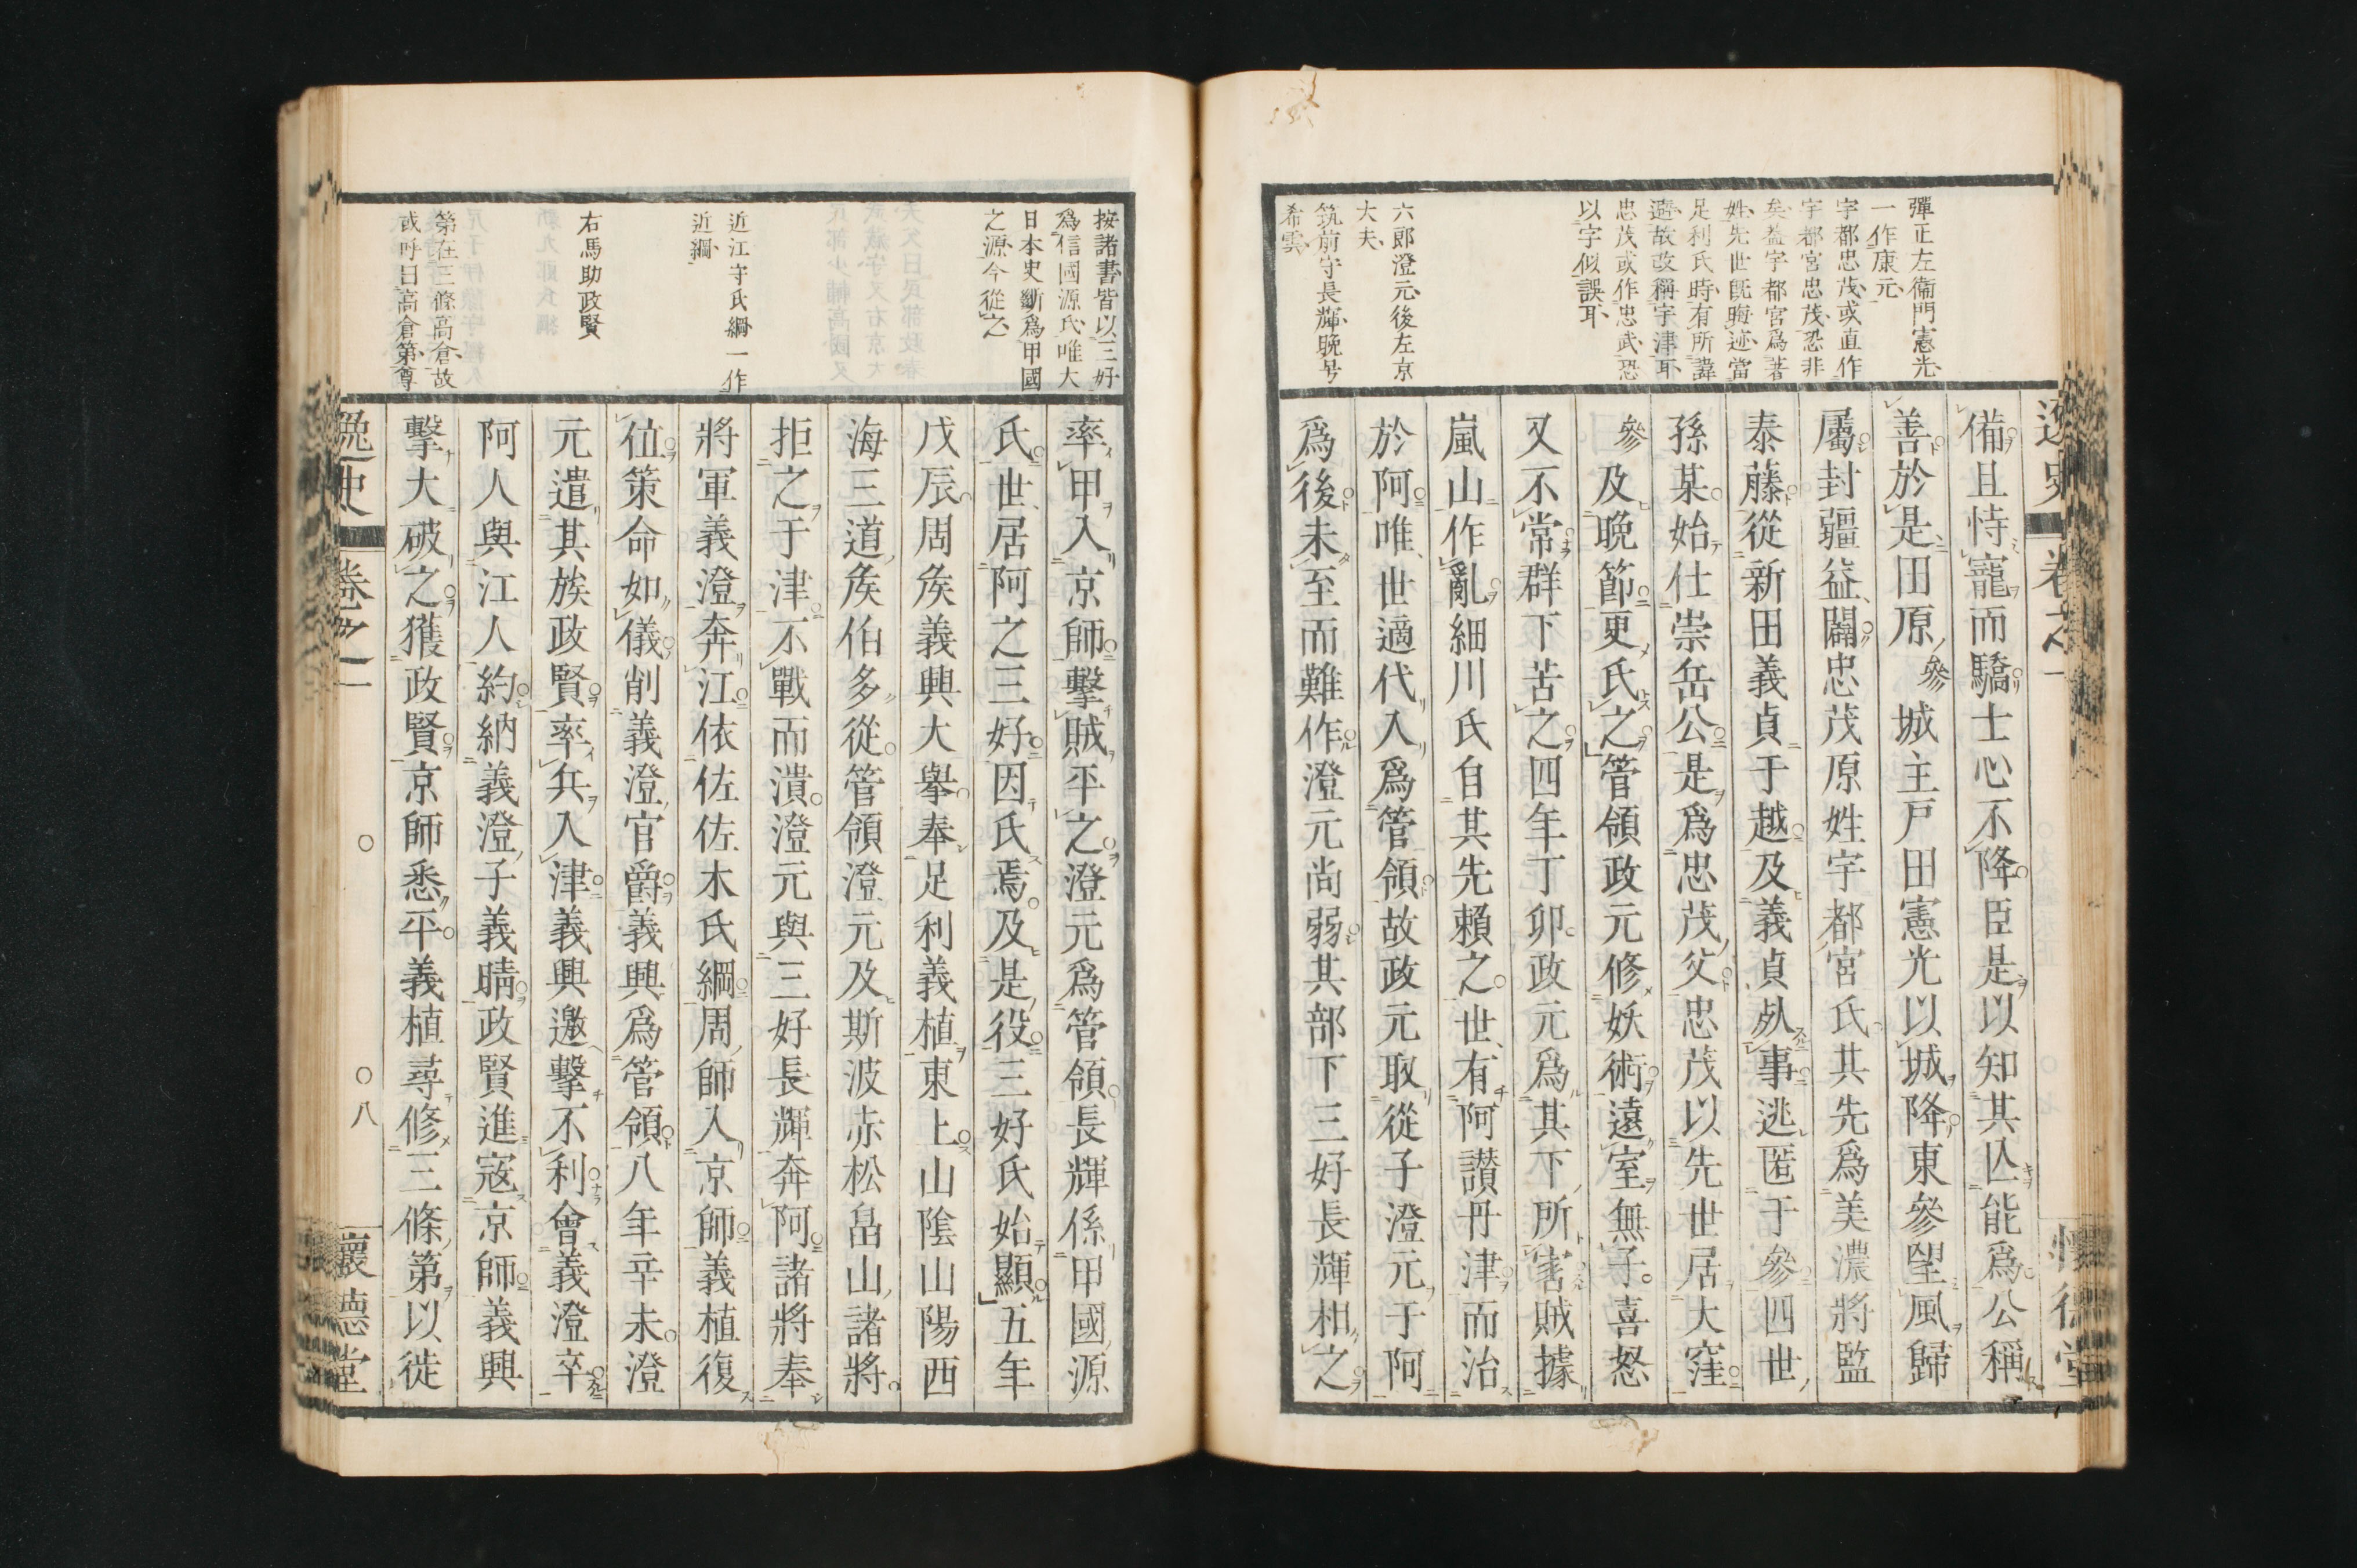 逸史 卷之一
懷德堂
彈正左衞門憲光
一作康元
宇都忠茂或直作
宇都宮忠茂恐非
矣葢宇都宮爲著
姓先世既晦迹當
足利氏時有所諱
避故改稱宇津耳
忠茂或作忠武恐
以字似誤耳
六郎澄元後左京
大夫
筑前守長輝晩号
希雲
備且恃寵而驕士心不降臣是以知其亾能爲公稱
善於是田原參城主戸田憲光以城降東參望風歸
屬封疆益闢忠茂原姓宇都宮氏其先爲美濃將監
泰藤從新田義貞于越及義貞歾事逃匿于參四世
孫某始仕崇岳公是爲忠茂父忠茂以先世居大窪
參及晩節更氏之管領政元修妖術遠室無子喜怒
又不常群下苦之四年丁卯政元爲其下所害賊據
嵐山作亂細川氏自其先賴之世有阿讃丹津而治
於阿唯世適代入爲管領故政元取從子澄元于阿
爲後未至而難作澄元尚弱其部下三好長輝相之
按諸書皆以三好
爲信國源氏唯大
日本史斷爲甲國
之源今從之
近江守氏綱一作
近綱
右馬助政賢
第在三條高倉故
或呼曰高倉第尊
率甲入京師擊賊平之澄元爲管領長輝係甲國源
氏世居阿之三好因氏焉及是役三好氏始顯五年
戊辰周矦義興大擧奉足利義植東上山陰山陽西
海三道矦伯多從管領澄元及斯波赤松畠山諸將
拒之于津不戰而潰澄元與三好長輝奔阿諸將奉
將軍義澄奔江依佐佐木氏綱周師入京師義植復
位策命如儀削義澄官爵義興爲管領八年辛未澄
元遣其族政賢率兵入津義興邀擊不利會義澄卒
阿人與江人約納義澄子義晴政賢進寇京師義興
擊大破之獲政賢京師悉平義植尋修三條第以徙
逸史 卷之一
八
懷德堂